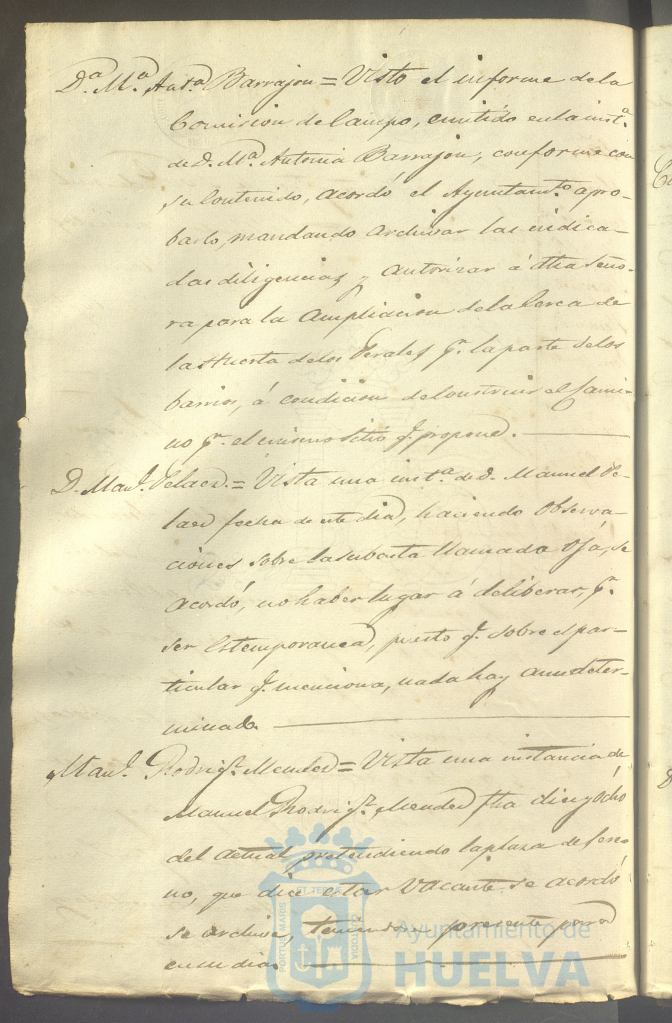 D.ª M.ª Ant.ª Barrajon = Visto el informe de la
Comision de Campo, emitido en la inst.ª
de D. M.ª Antonia Barrajon, conforme con
su contenido, acordó el Ayuntam.to apro-
barlo, mandando archivar las indica-
das diligencias, y autorizar á dha Seño-
ra para la ampliacion de la cerca de
la Huerta de los Perales p.r la parte de los
barrios, á condicion de construir el Cami-
no p.r el mismo sitio q.e propone.
D. Man.l Pelaez = Vista una inst.ª de D. Manuel Pe-
laez fecha de este dia, haciendo observa-
ciones sobre la subasta llamada Oja, se
acordó, no haber lugar á deliberar, p.r
ser estemporanea, puesto q.e sobre el par-
ticular q.e menciona, nada hay aun deter-
minado.
Man.l Rodrig.z Mendez = Vista una instancia de
Manuel Rodrig.z Mendez fha diez y ocho
del actual pretendiendo la plaza de sere-
no, que dice estar vacante se acordó
se archive, teniendose presente para
en su dia.
PORTUS MARIS ET TERRAE CUSTODIA
Ayuntamiento de
HUELVA